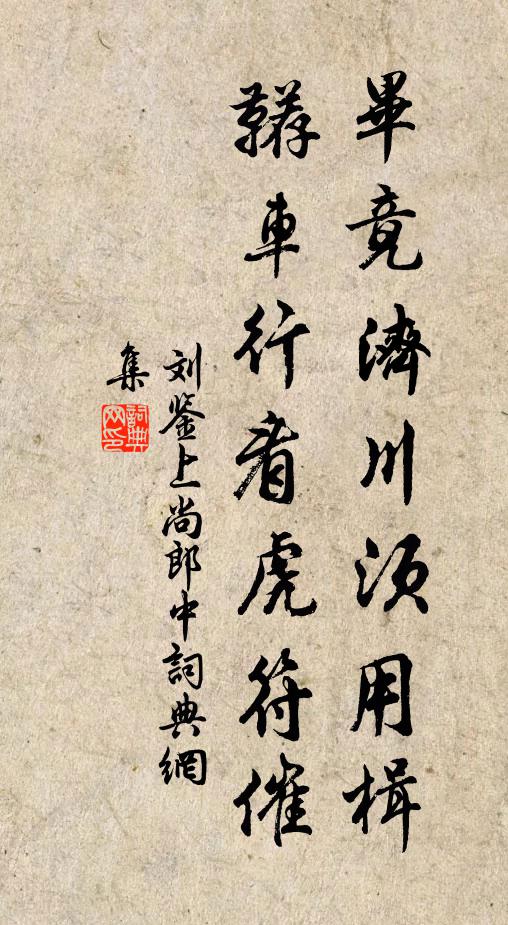 畢竟濟川須用楫
鞯車行看虎符催
刘鉴上尚郎中詞典網
集
詞典
网印